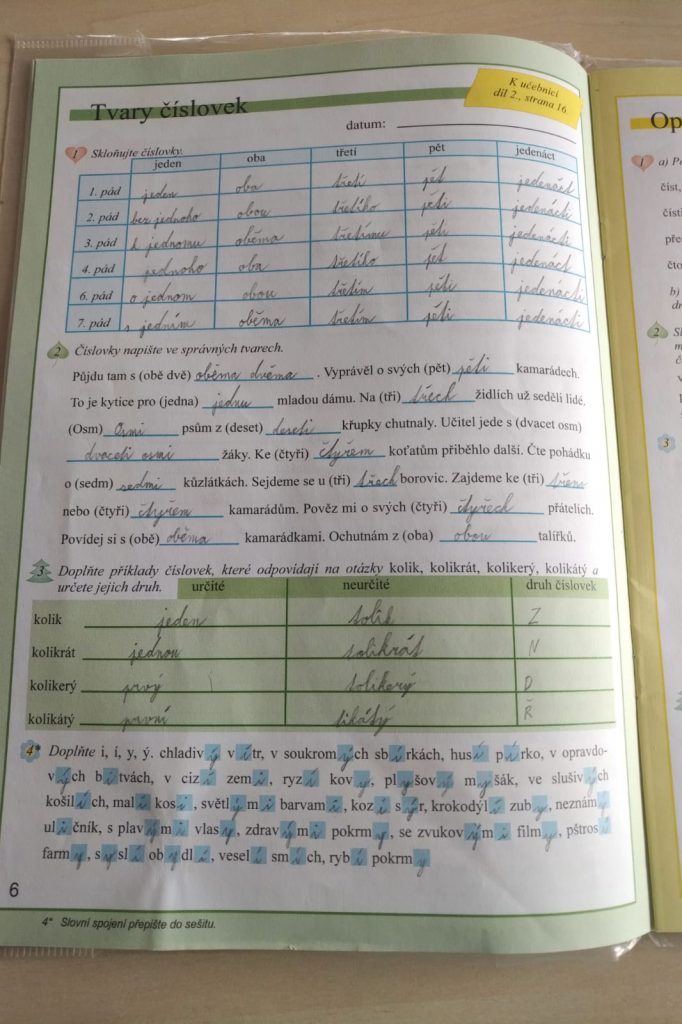 Tvary číslovek
K učebnici
díl 2., strana 16.
datum:
1 Skloňujte číslovky.
jeden oba třetí pět jedenáct
1. pád jeden oba třetí pět jedenáct
2. pád bez jednoho obou třetího pěti jedenácti
3. pád k jednomu oběma třetímu pěti jedenácti
4. pád jednoho oba třetího pět jedenáct
6. pád o jednom obou třetím pěti jedenácti
7. pád s jedním oběma třetím pěti jedenácti
2 Číslovky napište ve správných tvarech.
Půjdu tam s (obě dvě) oběma dvěma . Vyprávěl o svých (pět) pěti kamarádech.
To je kytice pro (jedna) jednu mladou dámu. Na (tři) třech židlích už seděli lidé.
(Osm) Osmi psům z (deset) deseti křupky chutnaly. Učitel jede s (dvacet osm)
dvaceti osmi žáky. Ke (čtyři) čtyřem koťatům přiběhlo další. Čte pohádku
o (sedm) sedmi kůzlátkách. Sejdeme se u (tři) třech borovic. Zajdeme ke (tři) třem
nebo (čtyři) čtyřem kamarádům. Pověz mi o svých (čtyři) čtyřech přátelích.
Povídej si s (obě) oběma kamarádkami. Ochutnám z (oba) obou talířků.
3 Doplňte příklady číslovek, které odpovídají na otázky kolik, kolikrát, kolikerý, kolikátý a
určete jejich druh. určité neurčité druh číslovek
kolik jeden tolik Z
kolikrát jednou tolikrát N
kolikerý prvý tolikerý D
kolikátý první tikátý Ř
4* Doplňte i, í, y, ý. chladivý vítr, v soukromých sbírkách, husí pírko, v opravdo-
vých bitvách, v cizí zemi, ryzí kovy, plyšový myšák, ve slušivých
košilích, malí kosi, světlými barvami, kozí sýr, krokodýlí zuby, neznámý
uličník, s plavými vlasy, zdravými pokrmy, se zvukovými filmy, pštrosí
farmy, syslí obydlí, veselí smích, rybí pokrmy
6
4* Slovní spojení přepište do sešitu.
Op
1 a) Po
číst,
čísti
pře
čto
b)
dr
2 Sl
m
č
v
3